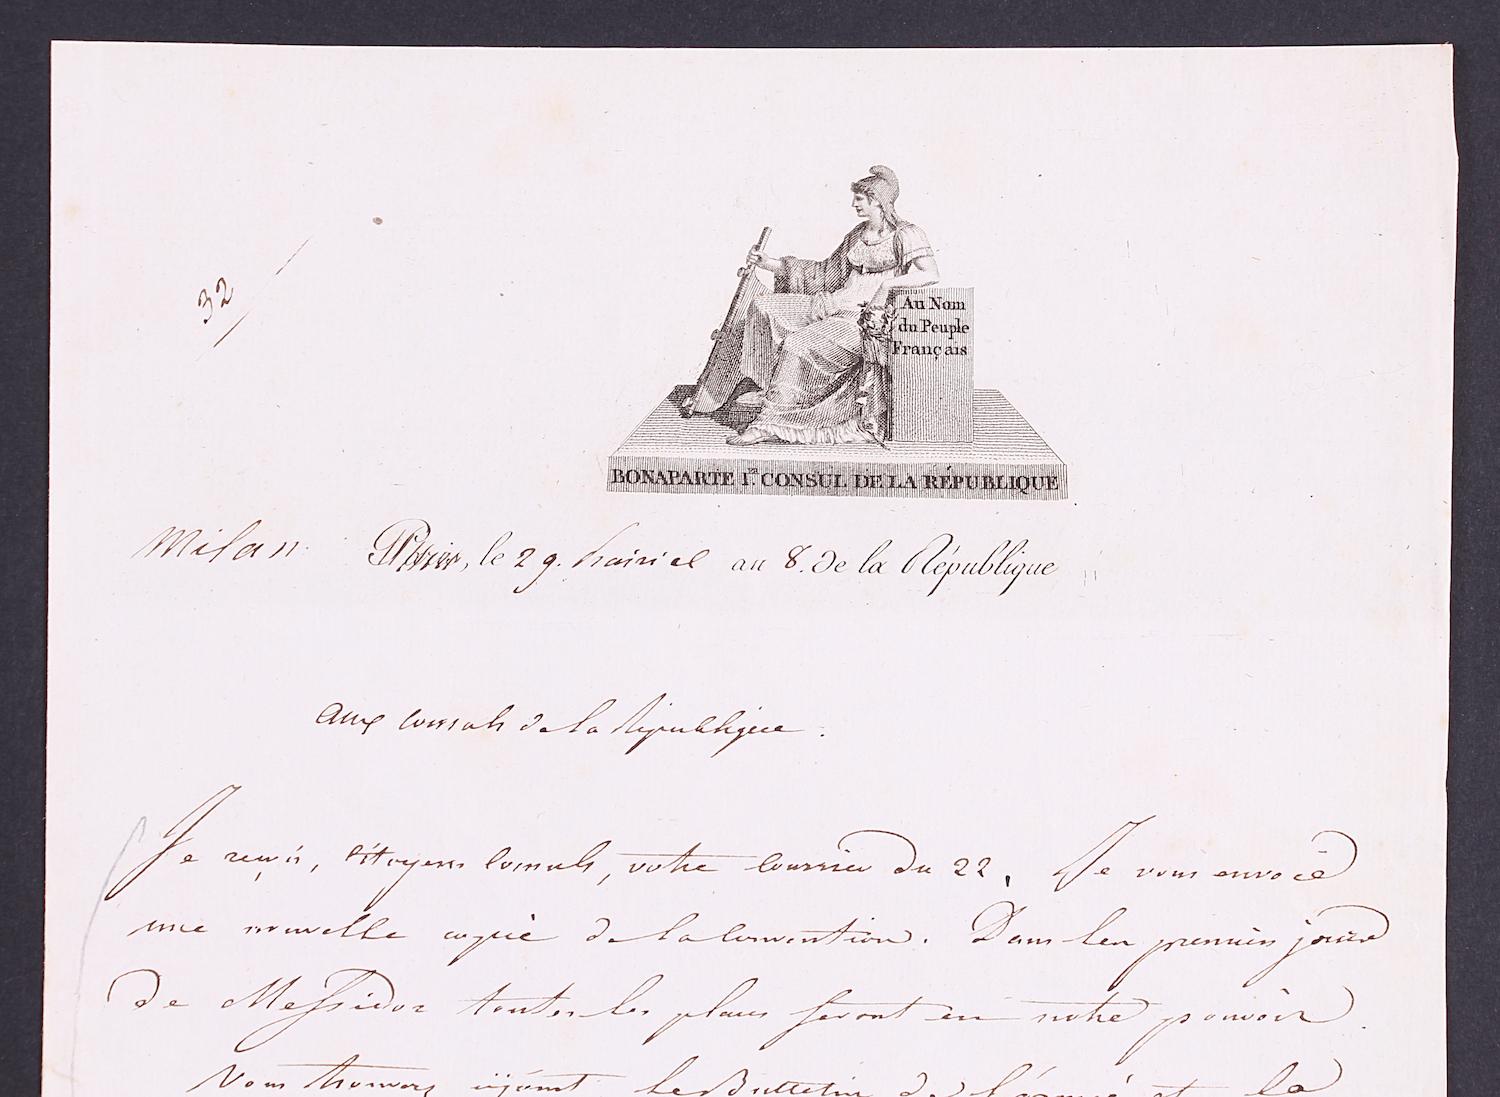 32
Au Nom
du Peuple
Français
BONAPARTE 1.ER CONSUL DE LA RÉPUBLIQUE
Milan Paris, le 29. Prairial an 8. de la République
Aux Consuls de la République.
Je reçois, Citoyens Consuls, votre Courrier du 22. Je vous envoie
une nouvelle copie de la Convention. Dans les premiers jours
de Messidor toutes les places seront en notre pouvoir.
Vous trouverez cijoint le Bulletin de l'armée et la